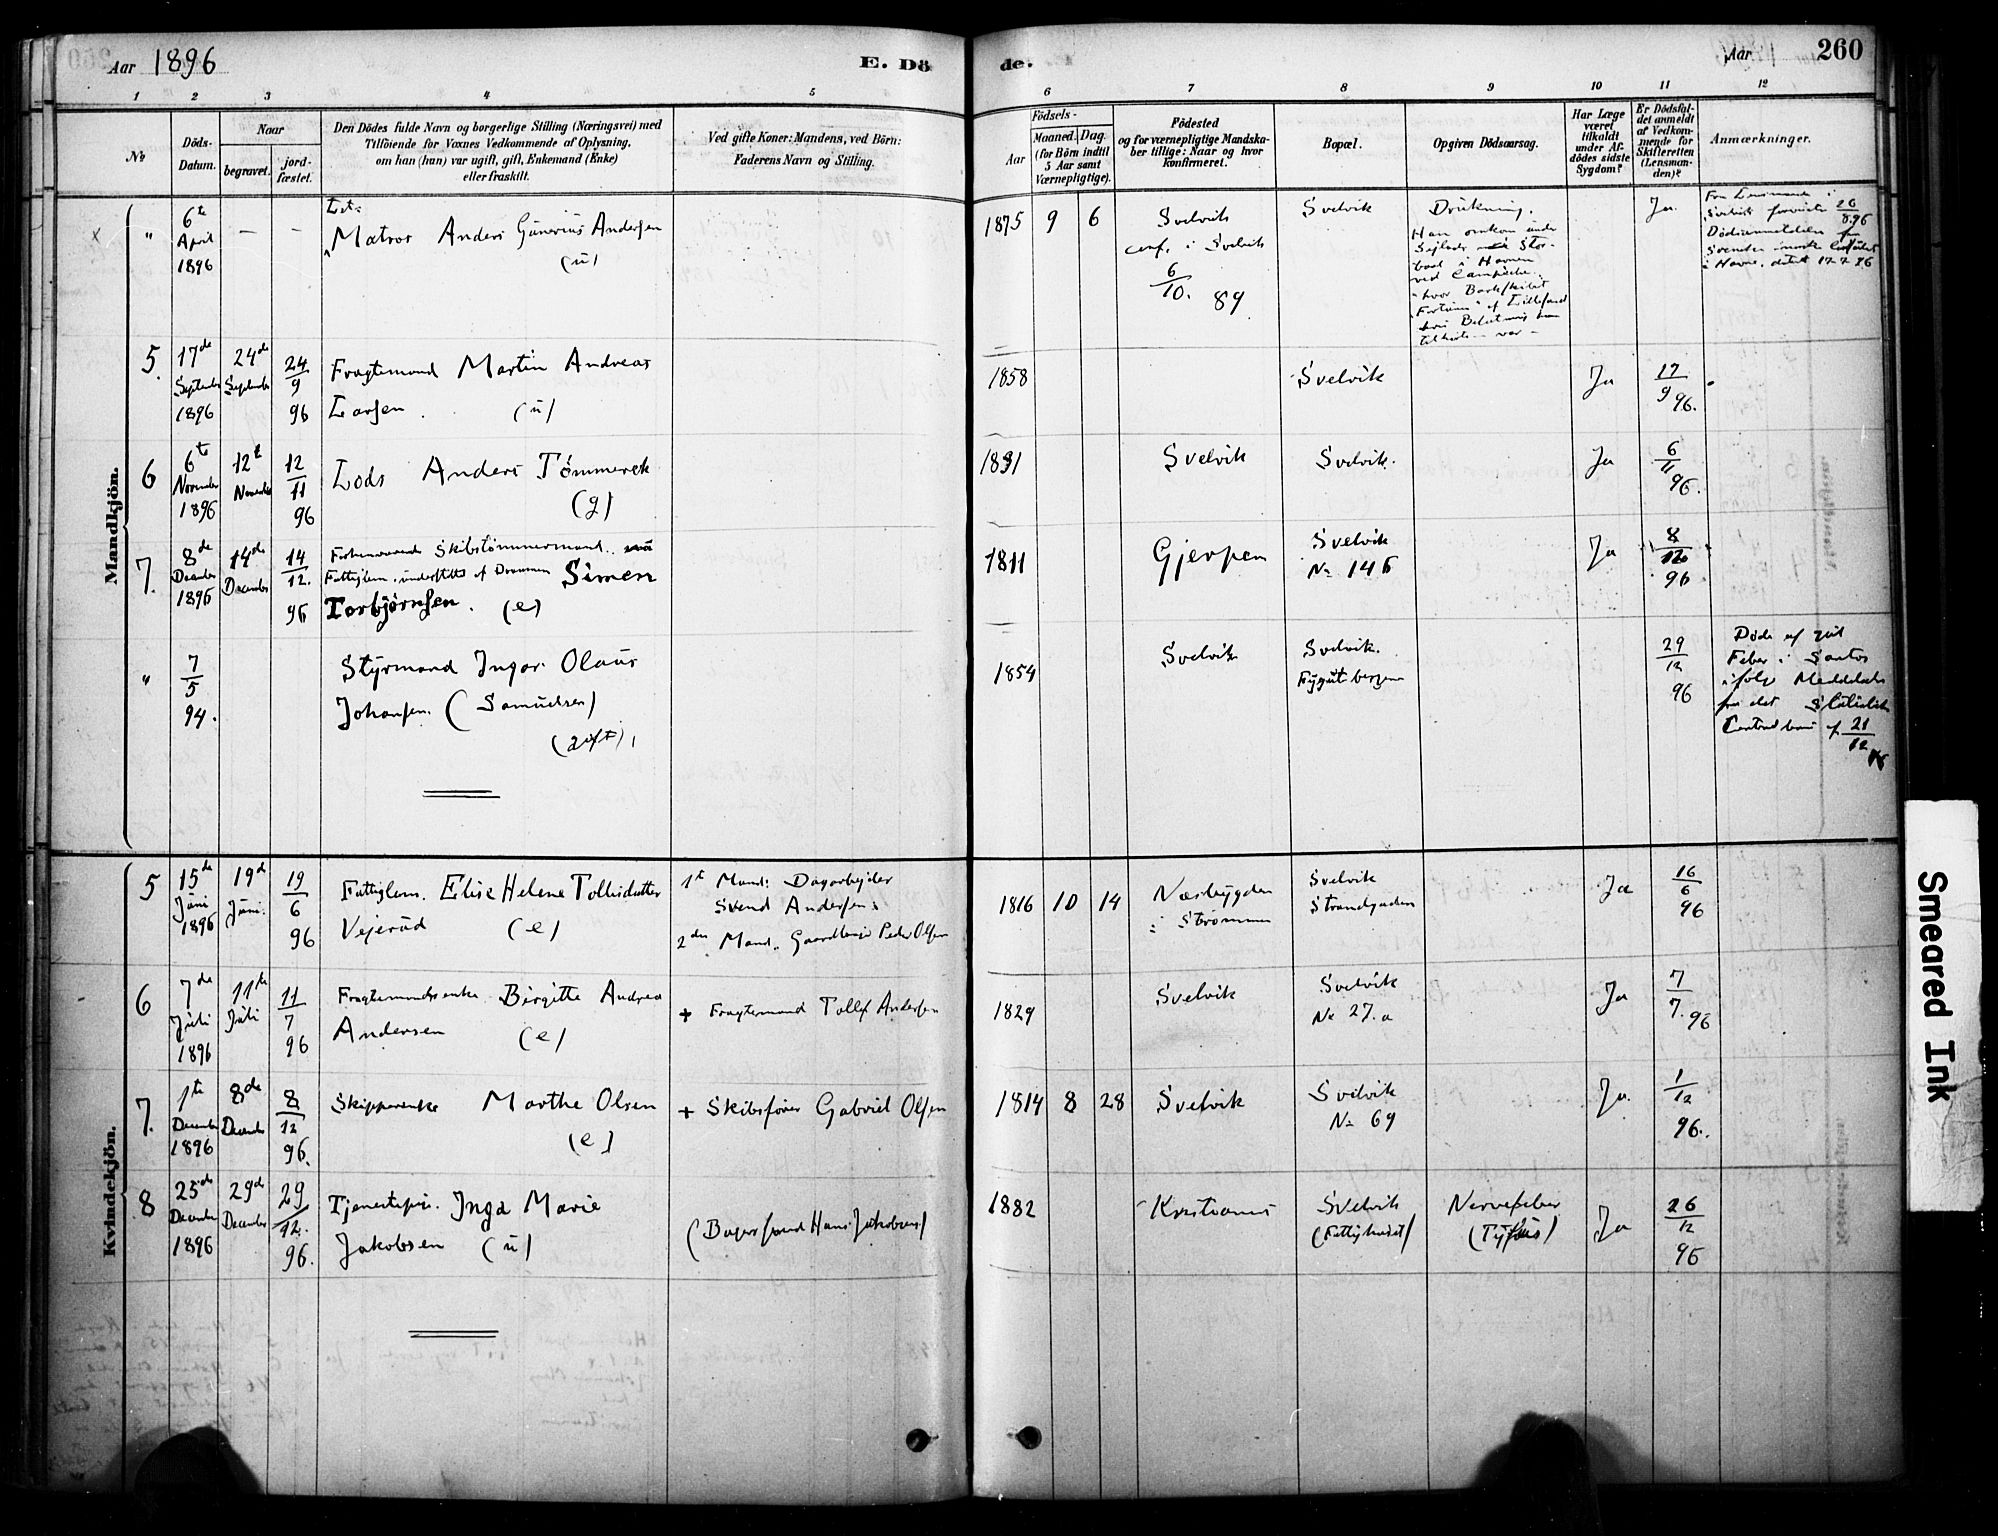 Aar 1896
E. Dö
de.
Aar 1
260
1 2 3 4 5 6 7 8 9 10 11 12
No
Döds-
Datum.
Naar
begravet.
jord-
fæstet.
Den Dödes fulde Navn og borgerlige Stilling (Næringsvei) med
Tilföiende for Voxnes Vedkommende af Oplysning,
om han (hun) var ugift, gift, Enkemand (Enke)
eller fraskilt.
Ved gifte Koner: Mandens, ved Börn:
Faderens Navn og Stilling.
Födsels-
Aar
Maaned. Dag.
(for Börn indtil
5 Aar samt
Værnepligtige).
Födested
og for værnepligtige Mandska-
ber tillige: Naar og hvor
konfirmeret.
Bopæl.
Opgiven Dödsaarsag.
Har Læge
været
tilkaldt
under Af-
dödes sidste
Sygdom?
Er Dödsfal-
det anmeldt
af Vedkom-
mende for
Skifteretten
(Lensman-
den)?
Anmærkninger.
Mandkjön.
"
6te
April
1896
— —
Matros Anders Gunerius Andersen
(u)
1875 9 6
Svelvik
conf. i Svelvik
6/10. 89
Svelvik
Drukning.
Han omkom under
Sejlads Stor-
baad i Havnen
ved Campeche
hvor Barkskibet
"Fortuna" af Lillesand
hvis Besætning han
tilhørte var —
Ja.
i
Svelvik 26/8 96
Dødsanmeldelse fra
Svenske norske Consulat
i Havre, datert 17-7 96
5.
17de
September
1896
24de
September
24/9 96
Fragtemand Martin Andreas
Larsen. (u)
1858
Svelvik
Ja
17/9 96.
6
6te
November
1896
12te
November
12/11 96
Lods Anders Tømmerek
(g)
1831
Svelvik
Svelvik.
Ja
6/11 96.
7.
8de
December
1896
14de
December
14/12. 96
Forhenværende Skibstømmermand
Fattiglem, understøttet af Drammen Simen
Torbjørnsen. (e)
1811
Gjerpen
Svelvik
No 146
Ja
8/12 96
"
7/5 94.
Styrmand Ingar Olaus
Johansen. (Samuelsen)
(gift)
1854
Svelvik
Svelvik.
29/12 96
Døde af gul
Feber i Santos
ifølge Meddelelse
fra det Statistiske
Centralbureau af 21/12 96
Kvindekjön.
5
15de
Juni
1896
19de
Juni.
19/6 96
Fattiglem. Elise Helene Tollisdatter
Vejerud (e)
1te Mand: Dagarbejder
Svend Andersen.
2den Mand. Gaardbruger Peder Olsen
1816 10 14
Næsbygden
i Strømmen
Svelvik
Strandgaden
Ja
16/6 96
6
7de
Juli
1896
11te
Juli
11/7 96
Fragtemandsenke Birgitte Andrea
Andersen (e)
+ Fragtemand Tollef Andersen
1829
Svelvik
Svelvik
No 27.a
Ja
7/7. 96
7.
1te
December
1896
8de
December
8/12 96.
Skipperenke Marthe Olsen
(e)
+ Skibsfører Gabriel Olsen
1814 8 28
Svelvik
Svelvik
No 69
Ja.
1/12 96.
8
25de
December
1896
29de
December
29/12. 96.
Tjenestepige. Inga Marie
Jakobsen (u)
(Bagersvend Hans Jakobsen)
1882
Kristiania
Svelvik
(Fattighuset)
Nervefeber
(Tyfus)
Ja
26/12 96
Smeared Ink